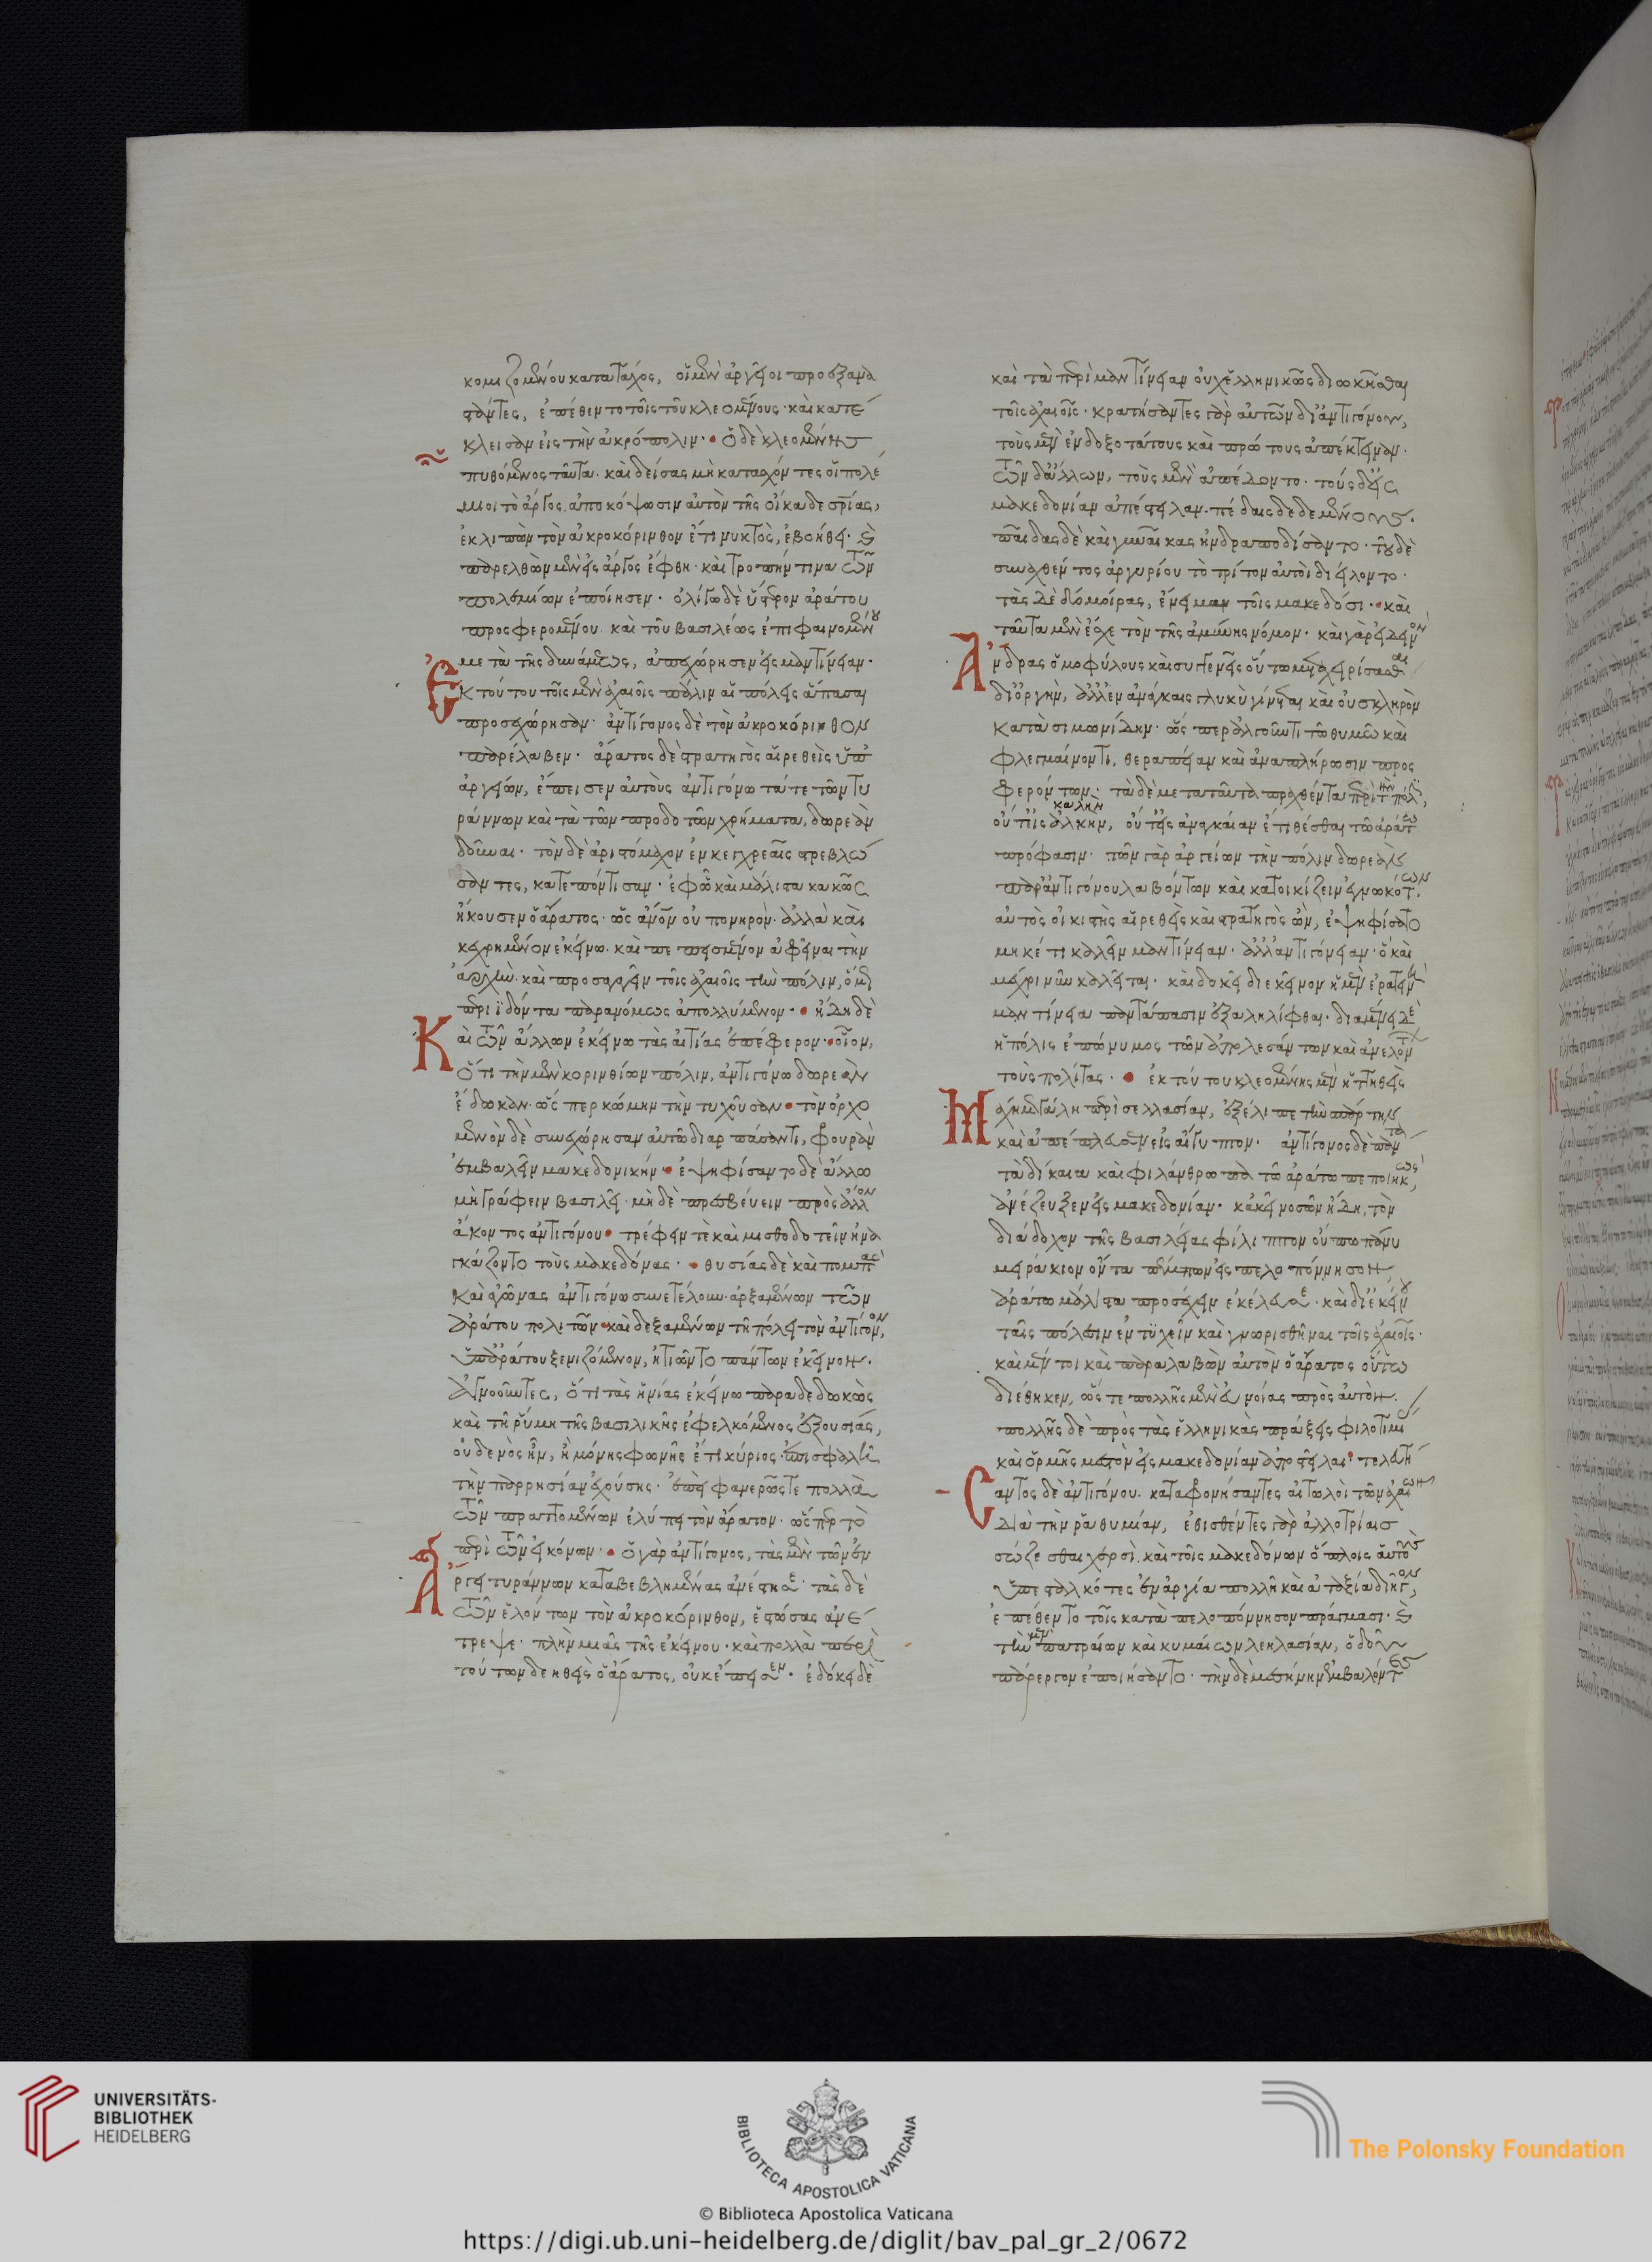 κομιζομένου κατὰ τάχος, οἱ μὲν ἀργεῖοι προεξανα
στάντες, ἐπέθεντο τοῖς τοῦ κλεομένους· καὶ κατέ
κλεισαν εἰς τὴν ἀκρόπολιν· ὁ δὲ κλεομένης
πυθόμενος ταῦτα· καὶ δείσας μὴ κατασχόντες οἱ πολέ
μιοι τὸ ἄργος, ἀποκόψωσιν αὐτὸν τῆς οἴκαδε σωτηρίας,
ἐκλιπὼν τὸν ἀκροκόρινθον ἔτι νυκτὸς, ἐβοήθει· καὶ
παρελθὼν μὲν εἰς ἄργος ἔφθη· καὶ τροπήν τινα τῶν
πολεμίων ἐποίησεν· ὀλίγω δὲ ὕστερον ἀράτου
προσφερομένου· καὶ τοῦ βασιλέως ἐπιφαινομένου
μετὰ τῆς δυνάμεως, ἀπεχώρησεν εἰς μαντίνειαν·
Ἐκ τούτου τοῖς μὲν ἀχαιοῖς πάλιν αἱ πόλεις ἅπασαι
προσεχώρησαν· ἀντίγονος δὲ τὸν ἀκροκόρινθον
παρέλαβεν· ἄρατος δὲ στρατηγὸς αἱρεθεὶς ὑπ
ἀργείων, ἔπεισεν αὐτοὺς ἀντιγόνω τά τε τῶν τυ
ράννων καὶ τὰ τῶν προδοτῶν χρήματα, δωρεὰν
δοῦναι· τὸν δὲ ἀριστόμαχον ἐν κεγχρεαῖς στρεβλώ
σαντες, κατεπόντισαν· ἐφ' ὧ καὶ μάλιστα κακῶς
ἤκουσεν ὁ ἄρατος· ὡς ἄνθρωπον οὐ πονηρὸν· ἀλλὰ καὶ
κεχρημένον ἐκείνω· καὶ πεπεισμένον ἀφεῖναι τὴν
ἀρχὴν· καὶ προσαγαγεῖν τοῖς ἀχαιοῖς τὴν πόλιν, ὅμως
περιϊδόντα παρανόμως ἀπολλύμενον· ἤδη δὲ
Καὶ τῶν ἄλλων ἐκείνω τὰς αἰτίας ἐπέφερον· οἷον,
ὅτι τὴν μὲν κορινθίων πόλιν, ἀντιγόνω δωρεὰν
ἔδωκαν· ὥσπερ κώμην τὴν τυχοῦσαν· τὸν ὀρχο
μενὸν δὲ συνεχώρησαν αὐτῶ διαρπάσαντι, φρουρὰν
ἐμβαλεῖν μακεδονικήν· ἐψηφίσαντο δὲ ἄλλω
μὴ γράφειν βασιλεῖ· μὴ δὲ πρεσβεύειν πρὸς ἄλλον
ἄκοντος ἀντιγόνου· τρέφειν τὲ καὶ μισθοδοτεῖν ἠνα
γκάζοντο τοὺς μακεδόνας· θυσίας δὲ καὶ πομπὰς
καὶ ἀγῶνας ἀντιγόνω συνετέλουν· ἀρξαμένων τῶν
ἀράτου πολιτῶν· καὶ δεξαμένων τῆ πόλει τὸν ἀντίγονον,
ὑπ' ἀράτου ξενιζόμενον, ἠτιῶντο πάντων ἐκεῖνον·
ἀγνοοῦντες, ὅτι τὰς ἡνίας ἐκείνω παραδεδωκὼς
καὶ τῆ ῥύμη τῆς βασιλικῆς ἐφελκόμενος ἐξουσίας,
οὐδενὸς ἦν, ἢ μόνης φωνῆς ἔτι κύριος· ἐπισφαλῆ
τὴν παρρησίαν ἐχούσης· ἐπεὶ φανερῶς τε πολλὰ
τῶν πραττομένων ἐλύπει τὸν ἄρατον· ὥσπερ τὸ
περὶ τῶν εἰκόνων· ὁ γὰρ ἀντίγονος, τὰς μὲν τῶν ἐν
Ἄργει τυράννων καταβεβλημένας ἀνέστησε· τὰς δὲ
τῶν ἑλόντων τὸν ἀκροκόρινθον, ἑστώσας ἀνέ
τρεψε· πλὴν μιᾶς τῆς ἐκείνου· καὶ πολλὰ περὶ
τούτων δεηθεὶς ὁ ἄρατος, οὐκ ἔπεισεν· ἐδόκει δὲ
καὶ τὰ περὶ μαντίνειαν οὐχ ἑλληνικῶς διωκῆσθαι
τοῖς ἀχαιοῖς· κρατήσαντες γὰρ αὐτῶν δι' ἀντιγόνου,
τοὺς μὲν ἐνδοξοτάτους καὶ πρώτους ἀπέκτειναν·
τῶν δ' ἄλλων, τοὺς μὲν ἀπέδοντο· τοὺς δ' εἰς
μακεδονίαν ἀπέστειλαν· πέδαις δεδεμένους·
παῖδας δὲ καὶ γυναῖκας ἠνδραποδίσαντο· τοῦ δὲ
συναχθέντος ἀργυρίου τὸ τρίτον αὐτοὶ διείλοντο·
τὰς δὲ δύο μοίρας, ἔνειμαν τοῖς μακεδόσι· καὶ
ταῦτα μὲν ἔσχε τὸν τῆς ἀμύνης νόμον· καὶ γὰρ δεινὸν
Ἄνδρας ὁμοφύλους καὶ συγγενεῖς οὕτω μεταχειρίσασθαι
δι' ὀργὴν, ἀλλ' ἐν ἀνάγκαις γλυκὺ γίνεται καὶ οὐ σκληρὸν
κατὰ σιμωνίδην· ὥσπερ ἀλγοῦντι τῶ θυμῶ καὶ
φλεγμαίνοντι, θεραπείαν καὶ ἀναπλήρωσιν προς
φερόντων· τὰ δὲ μετὰ ταῦτα πραχθέντα περὶ τὴν πόλιν,
οὔτ' εἰς καλὴν, οὔτ' εἰς ἀναγκαίαν ἔτι θέσθαι τῶ ἀράτω
πρόφασιν· τῶν γὰρ ἀργείων τὴν πόλιν δωρεὰν
παρ' ἀντιγόνου λαβόντων καὶ κατοικίζειν ἐγνωκότων,
αὐτὸς οἰκιστὴς αἱρεθεὶς καὶ στρατηγὸς ὢν, ἐψηφίσατο
μηκέτι καλεῖν μαντίνειαν· ἀλλ' ἀντιγόνειαν· ὃ καὶ
μέχρι νῦν καλεῖται· καὶ δοκεῖ δι' ἐκεῖνον ἡ μὲν ἐρατεινὴ
μαντίνεια παντάπασιν ἐξαληλίφθαι· διαμένει δὲ
ἡ πόλις ἐπώνυμος τῶν ἀπολεσάντων καὶ ἀνελόντων
τοὺς πολίτας· ἐκ τούτου κλεομένης μὲν ἡττηθεὶς
Μάχη μεγάλη περὶ σελλασίαν, ἐξέλιπε τὴν σπάρτην
καὶ ἀπέπλευσεν εἰς αἴγυπτον· ἀντίγονος δὲ πάντα
τὰ δίκαια καὶ φιλάνθρωπα τῶ ἀράτω πεποιηκὼς,
ἀνέζευξεν εἰς μακεδονίαν· κἀκεῖ νοσῶν ἤδη, τὸν
διάδοχον τῆς βασιλείας φίλιππον οὔπω πάνυ
μειράκιον ὄντα πέμπων εἰς πελοπόννησον,
ἀράτω μάλιστα προσέχειν ἐκέλευσε· καὶ δι' ἐκείνου
ταῖς πόλεσιν ἐντυχεῖν καὶ γνωρισθῆναι τοῖς ἀχαιοῖς·
καὶ μέντοι καὶ παραλαβὼν αὐτὸν ὁ ἄρατος οὕτω
διέθηκεν, ὥστε πολλῆς μὲν εὐνοίας πρὸς αὐτὸν·
πολλῆς δὲ πρὸς τὰς ἑλληνικὰς πράξεις φιλοτιμίας
καὶ ὁρμῆς μεστὸν εἰς μακεδονίαν ἀποστεῖλαι· τελευτή
Σαντος δὲ ἀντιγόνου· καταφρονήσαντες αἰτωλοὶ τῶν ἀχαιῶν
διὰ τὴν ῥαθυμίαν, ἐθισθέντες γὰρ ἀλλοτρίαις
σώζεσθαι χερσὶ· καὶ τοῖς μακεδόνων ὅπλοις αὑτοὺς
ὑπεσταλκότες ἐν ἀργία πολλῆ καὶ ἀταξία διῆγον,
ἐπέθεντο τοῖς κατὰ πελοπόννησον πράγμασι· καὶ
τὴν μὲν πατραίων καὶ δυμαίων λεηλασίαν, ὁδοῦ
πάρεργον ἐποιήσαντο· τὴν δὲ μεσήνην ἐμβαλόντες
UNIVERSITÄTS-
BIBLIOTHEK
HEIDELBERG
BIBLIOTECA APOSTOLICA VATICANA
The Polonsky Foundation
© Biblioteca Apostolica Vaticana
https://digi.ub.uni-heidelberg.de/diglit/bav_pal_gr_2/0672